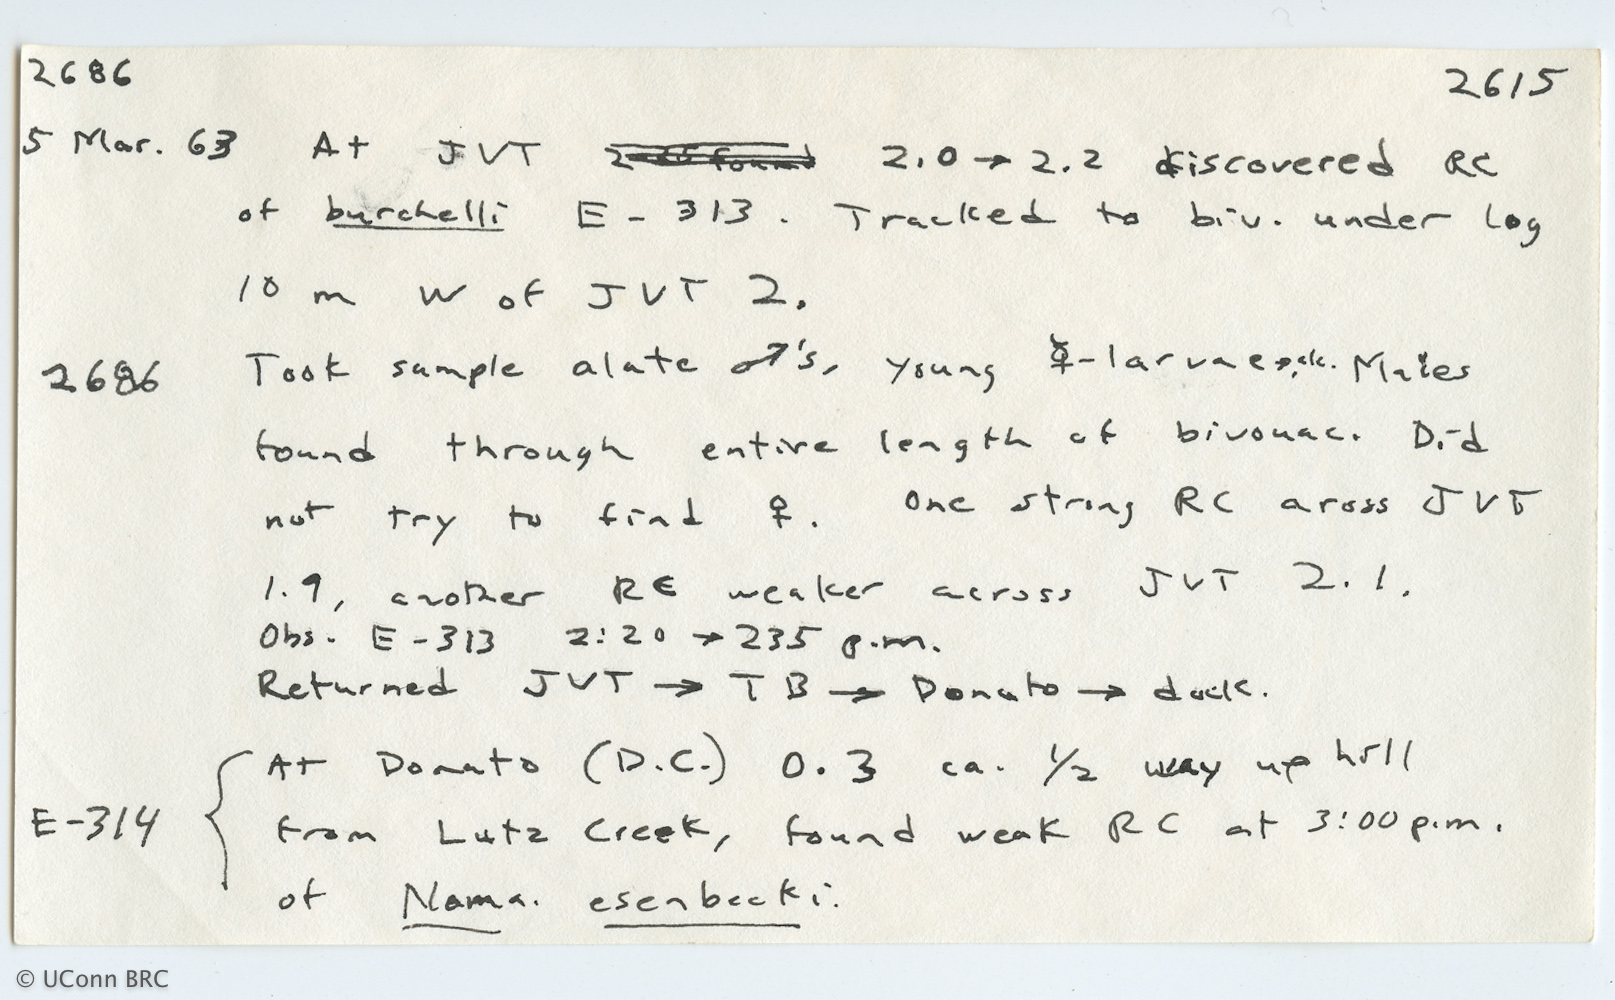 2686 2615
5 Mar. 63 At JVT found 2.0 → 2.2 discovered RC
of burchelli E-313. Tracked to biv. under log
10 m W of JVT 2.
2686 Took sample alate ♂'s, young ☿-larvae, etc. Males
found through entire length of bivouac. Did
not try to find ♀. One strong RC aross JVT
1.9, another RC weaker across JVT 2.1.
Obs. E-313 2:20 → 235 p.m.
Returned JVT → TB → Donato → dock.
At Donato (D.C.) 0.3 ca. 1/2 way up hill
E-314 from Lutz Creek, found weak RC at 3:00 p.m.
of Noma. esenbecki.
© UConn BRC